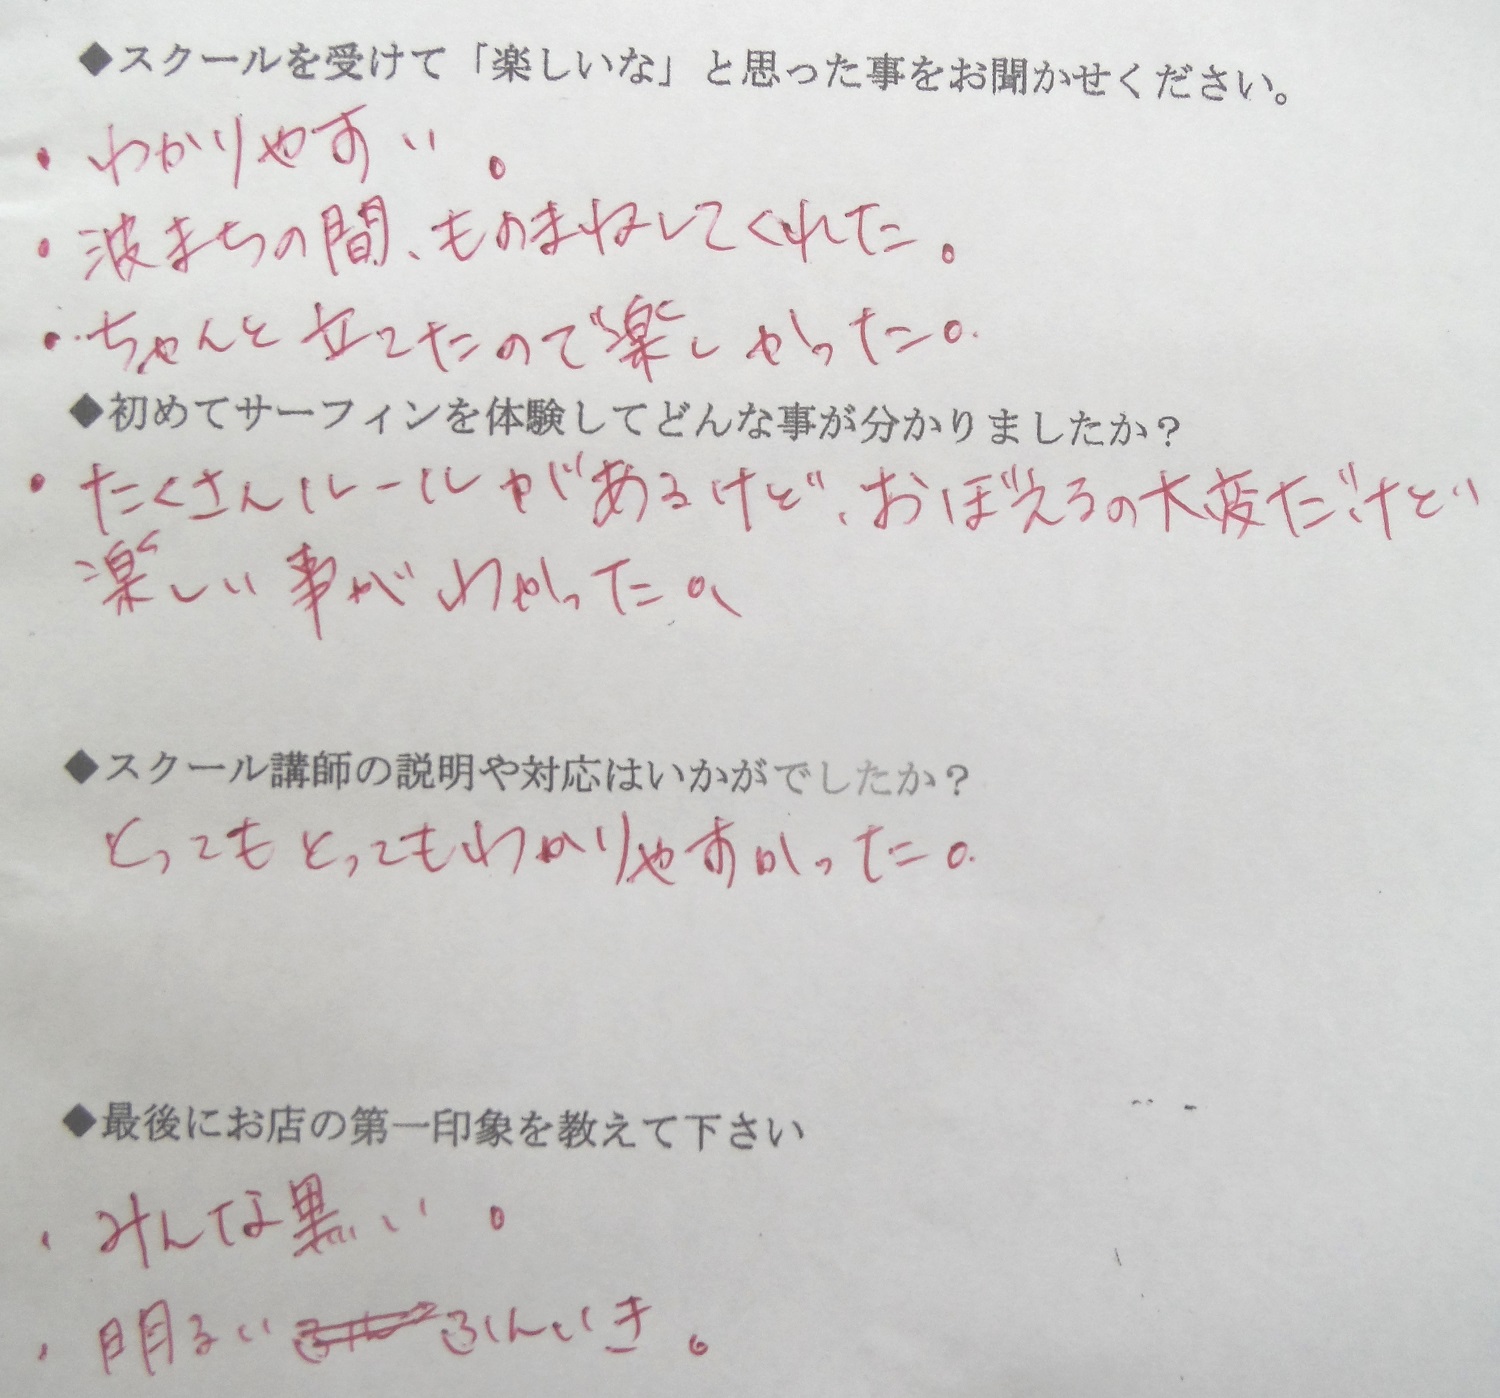 ◆スクールを受けて「楽しいな」と思った事をお聞かせください。
・わかりやすい。
・波まちの間、ものまねしてくれた。
・ちゃんと立てたので楽しかった。
◆初めてサーフィンを体験してどんな事が分かりましたか？
・たくさんルールがあるけど、おぼえるの大変だけど
楽しい事がわかった。
◆スクール講師の説明や対応はいかがでしたか？
とってもとってもわかりやすかった。
◆最後にお店の第一印象を教えて下さい
・みんな黒い。
・明るいふんいき。